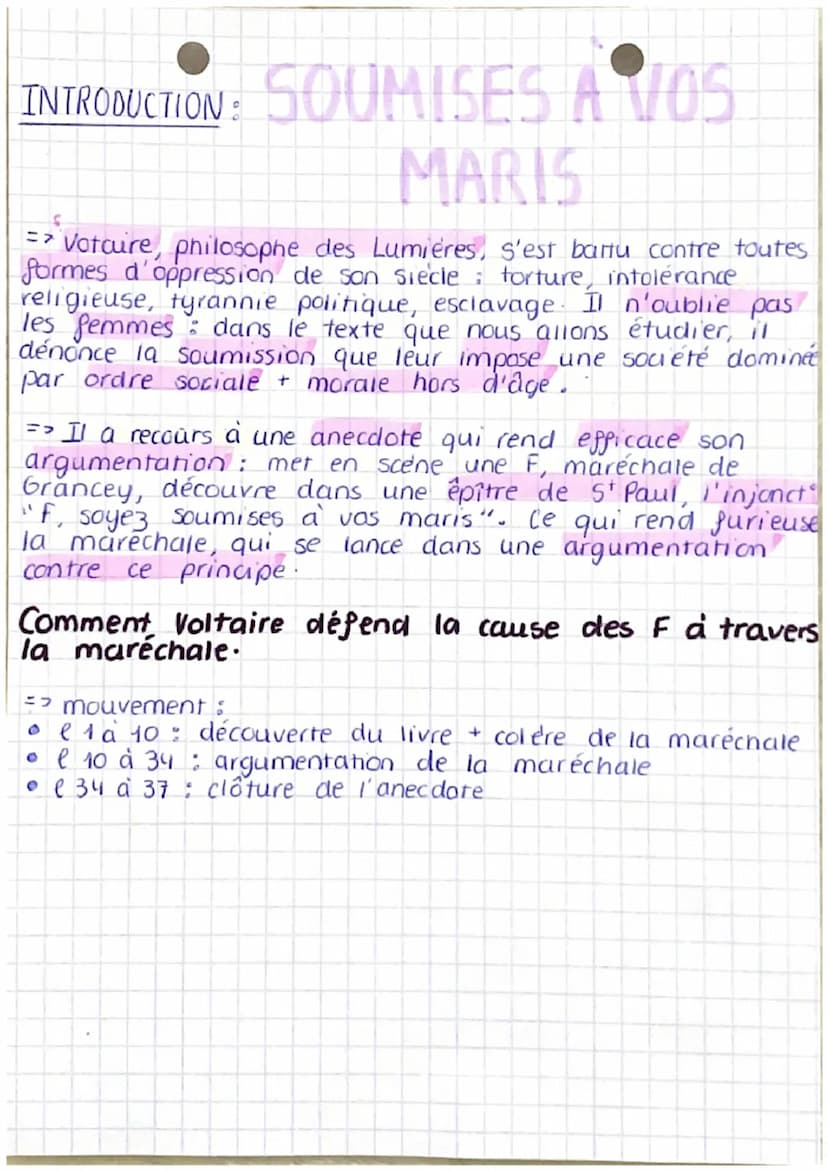 INTRODUCTION : SOUMISES À VOS
MARIS
=> Voltaire, philosophe des Lumiéres, s'est battu contre toutes
formes d'oppression de son siècle : torture, intolérance
religieuse, tyrannie politique, esclavage. Il n'oublie pas
les femmes : dans le texte que nous allons étudier, il
dénonce la soumission que leur impose une société dominée
par ordre sociale + morale hors d'âge.
=> Il a recours à une anecdote qui rend efficace son
argumentation : met en scène une F, maréchale de
Grancey, découvre dans une épître de St Paul, l'injonct°
"F, soyez soumises à vos maris". Ce qui rend furieuse
la maréchale, qui se lance dans une argumentation
contre ce principe.
Comment Voltaire défend la cause des F à travers
la maréchale.
=> mouvement :
• l 1 à 10 : découverte du livre + colére de la maréchale
• l 10 à 34 : argumentation de la maréchale
• l 34 à 37 : clôture de l'anecdote